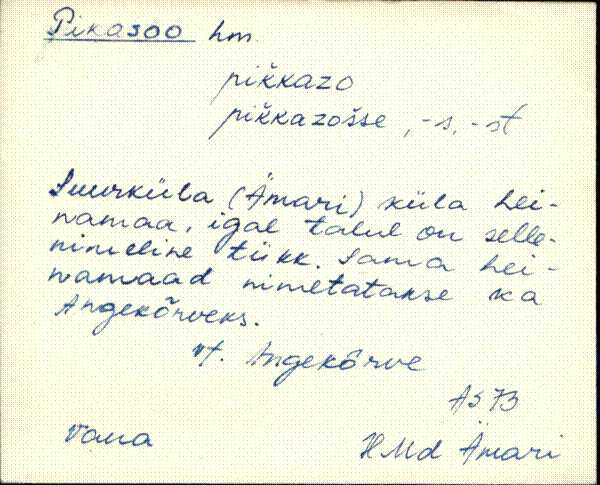 Pikasoo hm.
pikkazo
pikkazošse, -s, -st
Suurküla (Ämari) küla hei-
namaa, igal talul on selle-
nimeline tükk. Sama hei-
namaad nimetatakse ka
Angekõrveks.
vt. Angekõrve
AS 73
Vana
HMd Ämari